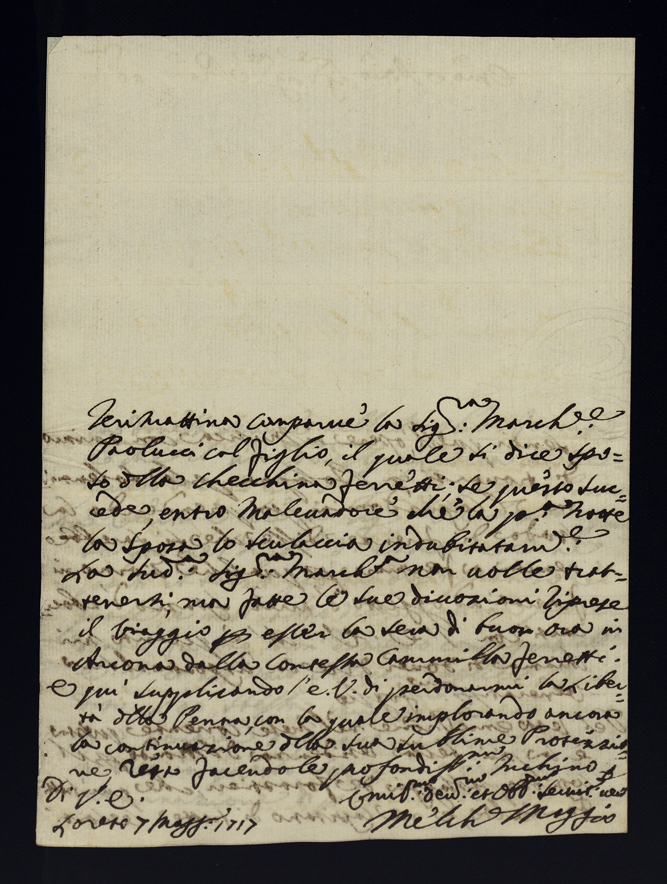 Ieri Mattina comparve la Sig.ra March.e
Paolucci col figlio, il quale si dice Spo=
so della Checchina Ferretti; se questo suc=
cede, entro Malevadore che la p.a Notte
la Sposa lo sculaccia indubitatam.e
La Sud.a Sig.ra March.a non volle trat=
tenersi, ma fatte le sue divozioni riprese
il viaggio per esser la sera di buon ora in
Ancona dalla Contessa Cammilla Ferretti.
e qui supplicando l'E.V. di perdonarmi la liber=
tà della Penna, con la quale implorando ancora
la continuazione della sua sublime Protezzio=
ne resto facendole profondiss.mo inchino
Di V.E.
Loreto 7 Magg.o 1717
Umil.mo dev.mo et Obb.mo servit.re vero
Melch.e Maggio